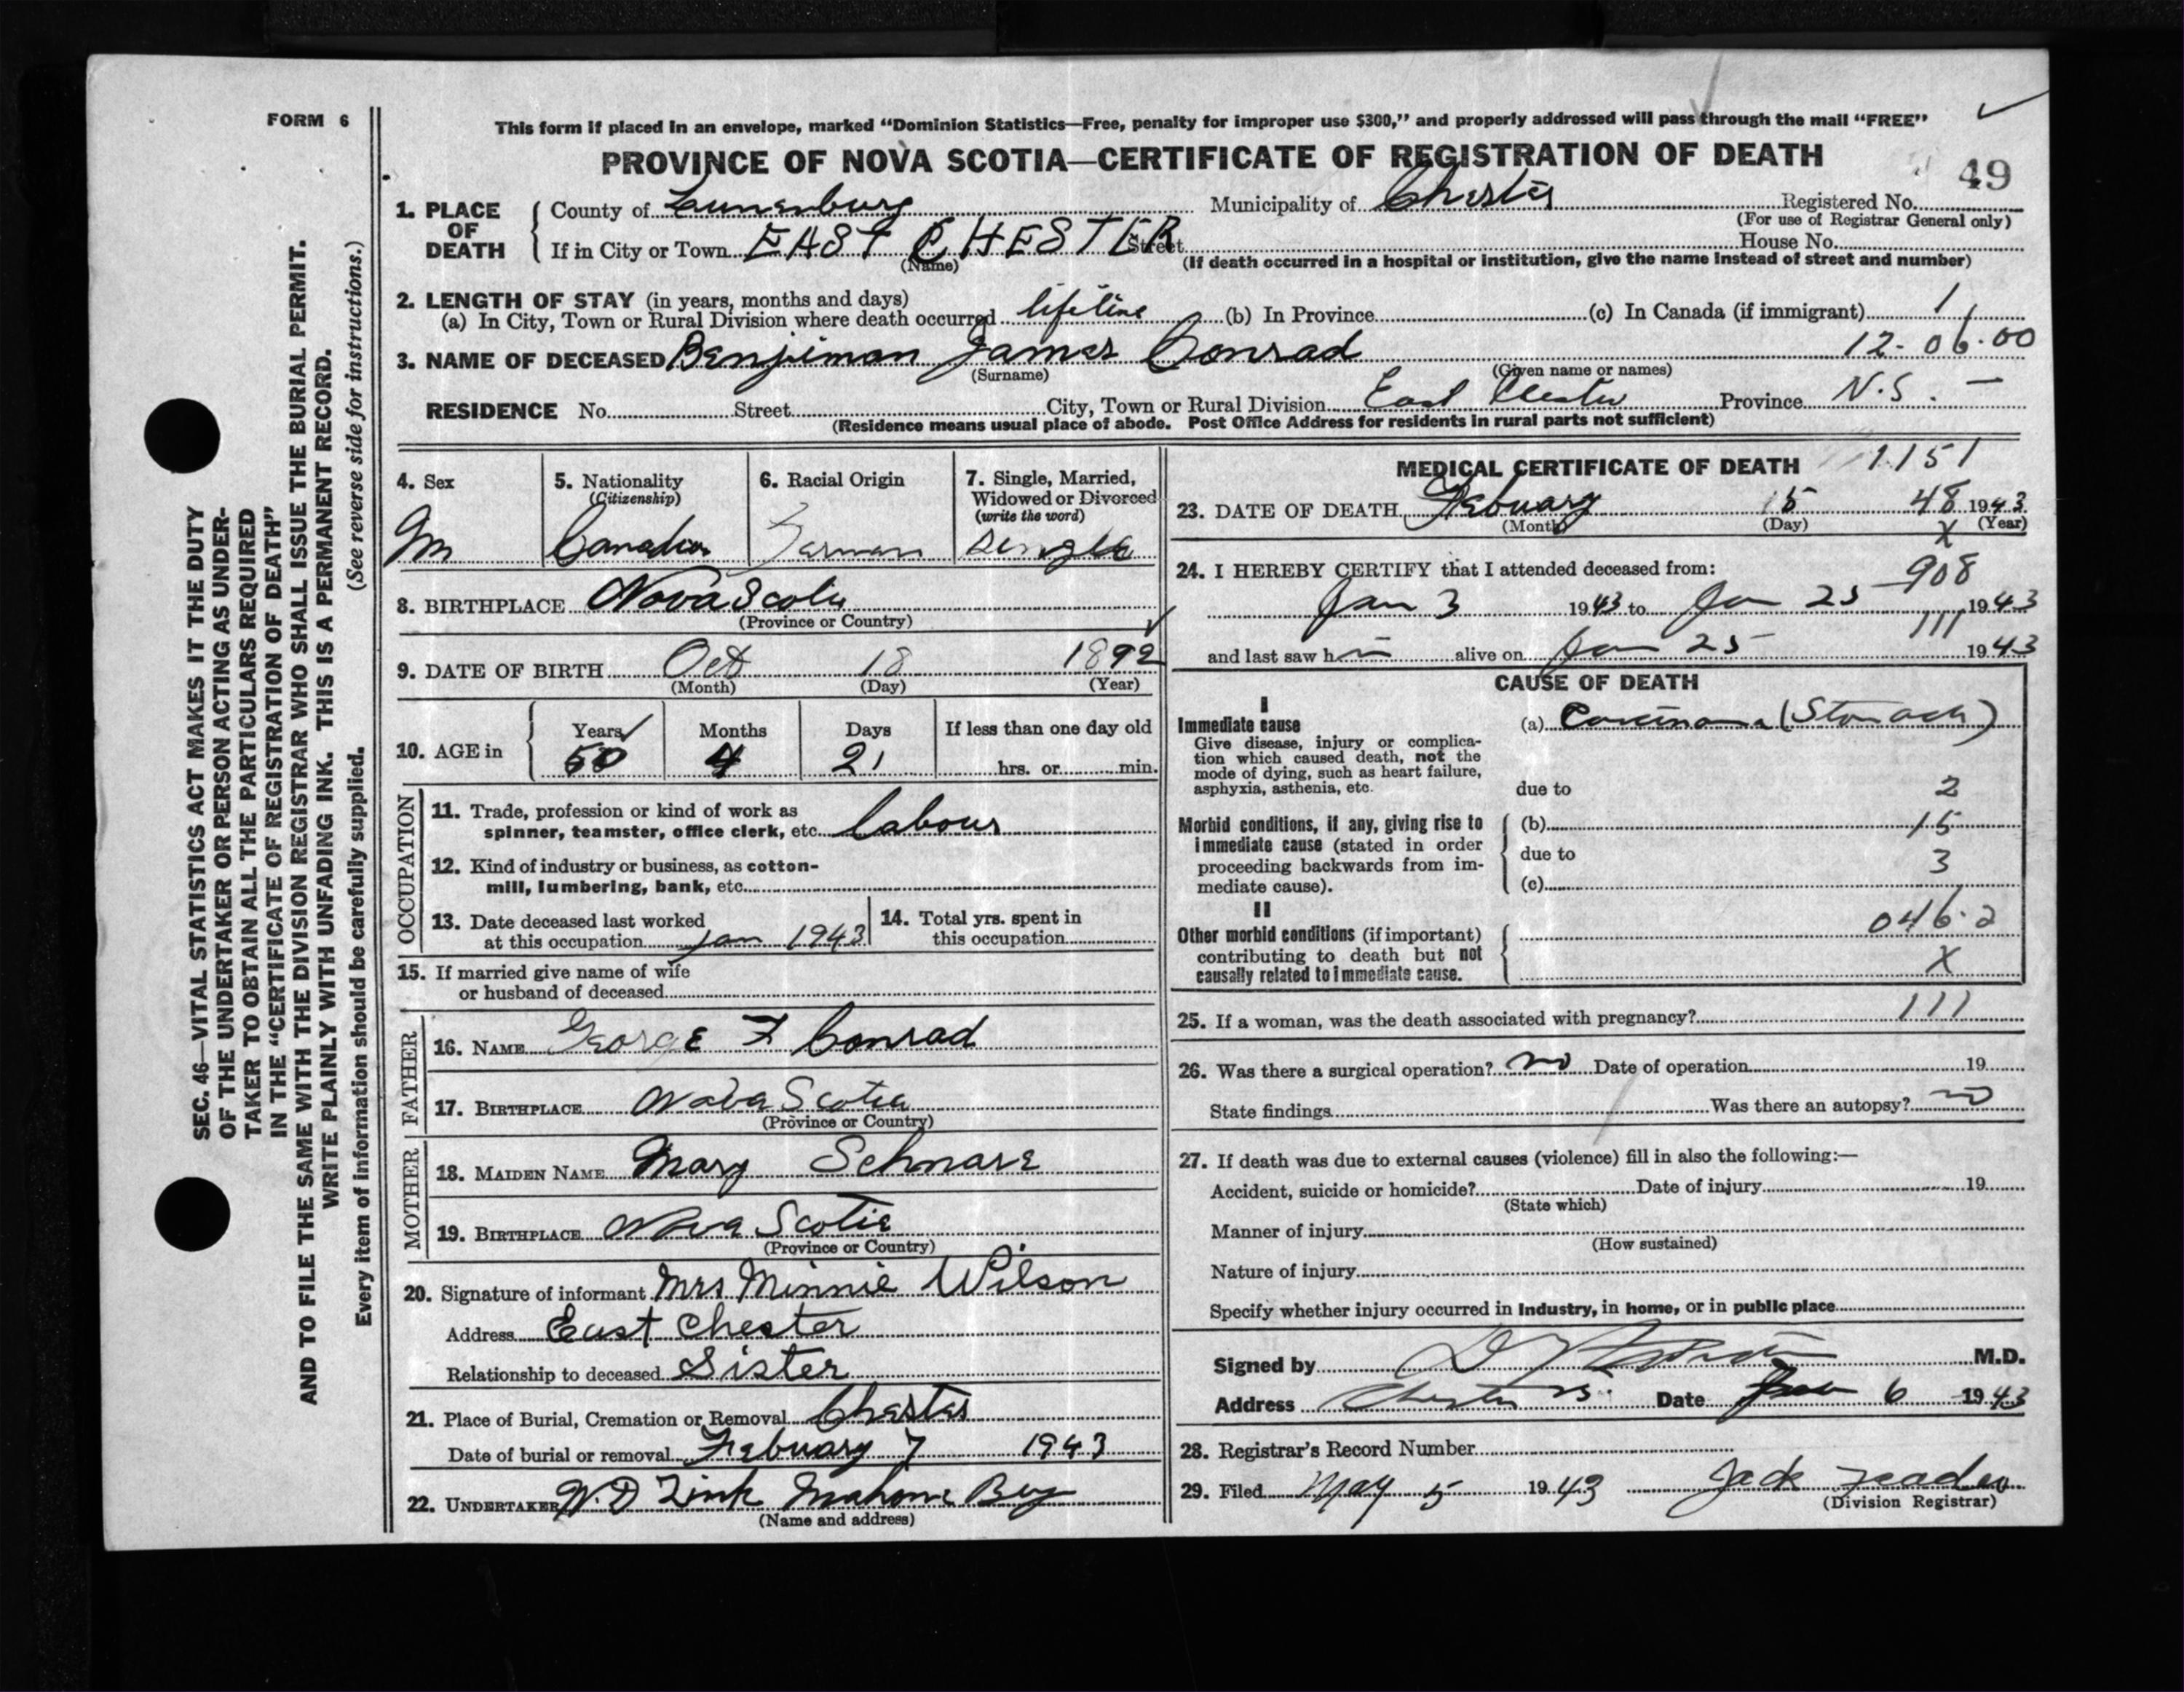 FORM 6
This form if placed in an envelope, marked "Dominion Statistics—Free, penalty for improper use $300," and properly addressed will pass through the mail "FREE"
PROVINCE OF NOVA SCOTIA—CERTIFICATE OF REGISTRATION OF DEATH
49
1. PLACE OF DEATH
County of Lunenburg Municipality of Chester Registered No.
(For use of Registrar General only)
If in City or Town EAST CHESTER Street House No.
(Name) (If death occurred in a hospital or institution, give the name instead of street and number)
2. LENGTH OF STAY (in years, months and days)
(a) In City, Town or Rural Division where death occurred lifetime (b) In Province (c) In Canada (if immigrant) 1
3. NAME OF DECEASED Benjiman James Conrad 12-06.00
(Surname) (Given name or names)
RESIDENCE No. Street City, Town or Rural Division East Chester Province N.S. –
(Residence means usual place of abode. Post Office Address for residents in rural parts not sufficient)
4. Sex
M
5. Nationality
(Citizenship)
Canadian
6. Racial Origin
German
7. Single, Married,
Widowed or Divorced
(write the word)
single
8. BIRTHPLACE Nova Scotia
(Province or Country)
9. DATE OF BIRTH Oct 18 1892
(Month) (Day) (Year)
10. AGE in
Years Months Days If less than one day old
50 4 21 hrs. or min.
OCCUPATION
11. Trade, profession or kind of work as
spinner, teamster, office clerk, etc. labour
12. Kind of industry or business, as cotton-
mill, lumbering, bank, etc.
13. Date deceased last worked
at this occupation Jan 1943
14. Total yrs. spent in
this occupation
15. If married give name of wife
or husband of deceased
FATHER
16. NAME George F Conrad
17. BIRTHPLACE Nova Scotia
(Province or Country)
MOTHER
18. MAIDEN NAME Mary Schnare
19. BIRTHPLACE Nova Scotia
(Province or Country)
20. Signature of informant Mrs Minnie Wilson
Address East Chester
Relationship to deceased Sister
21. Place of Burial, Cremation or Removal Chester
Date of burial or removal Febuary 7 1943
22. UNDERTAKER W.D Zink Mahone Bay
(Name and address)
MEDICAL CERTIFICATE OF DEATH 1151
23. DATE OF DEATH Febuary 5 48 1943
(Month) (Day) (Year)
X
24. I HEREBY CERTIFY that I attended deceased from:
908
Jan 3 1943 to Jan 25 1943
111
and last saw h im alive on Jan 25 1943
CAUSE OF DEATH
I
Immediate cause
(a) Carcinoma (Stomach)
Give disease, injury or complica-
tion which caused death, not the
mode of dying, such as heart failure,
asphyxia, asthenia, etc.
due to 2
Morbid conditions, if any, giving rise to
immediate cause (stated in order
proceeding backwards from im-
mediate cause).
(b) 15
due to 3
(c)
II
Other morbid conditions (if important)
contributing to death but not
causally related to immediate cause.
046.2
X
25. If a woman, was the death associated with pregnancy? 111
26. Was there a surgical operation? no Date of operation 19
State findings Was there an autopsy? no
27. If death was due to external causes (violence) fill in also the following:—
Accident, suicide or homicide? Date of injury 19
(State which)
Manner of injury
(How sustained)
Nature of injury
Specify whether injury occurred in industry, in home, or in public place
Signed by M.D.
Address Chester Date 6 1943
28. Registrar's Record Number
29. Filed May 5 1943 Jack
(Division Registrar)
SEC. 46—VITAL STATISTICS ACT MAKES IT THE DUTY
OF THE UNDERTAKER OR PERSON ACTING AS UNDER-
TAKER TO OBTAIN ALL THE PARTICULARS REQUIRED
IN THE "CERTIFICATE OF REGISTRATION OF DEATH"
AND TO FILE THE SAME WITH THE DIVISION REGISTRAR WHO SHALL ISSUE THE BURIAL PERMIT.
WRITE PLAINLY WITH UNFADING INK. THIS IS A PERMANENT RECORD.
Every item of information should be carefully supplied. (See reverse side for instructions.)